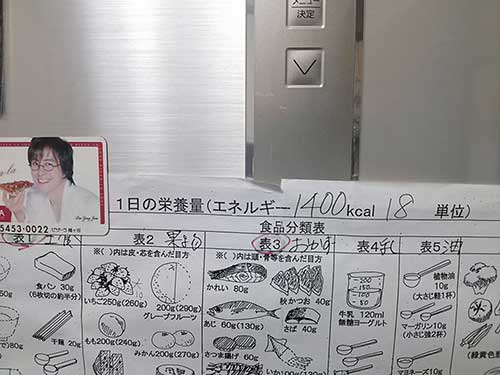 メニュー
決定
5453-0022
Bae Yong Joon
1日の栄養量(エネルギー 1400 kcal 18 単位)
食品分類表
表1
表2 果もの
表3 おかず
表4 乳
表5 油
※( )内は皮・芯を含んだ目方
※( )内は頭・骨等を含んだ目方
食パン 30g
(6枚切の約半分)
干麺 20g
80g
いちご250g(260g)
200g(290g)
グレープフルーツ
もも200g(240g)
みかん200g(270g)
かれい 80g
秋かつお 40g
あじ 60g(130g)
さば 40g
さつま揚げ 60g
牛乳 120ml
無糖ヨーグルト
150
100
50
植物油
10g
(大さじ軽1杯)
マーガリン10g
(小さじ強2杯)
マヨネーズ10g
(緑黄色